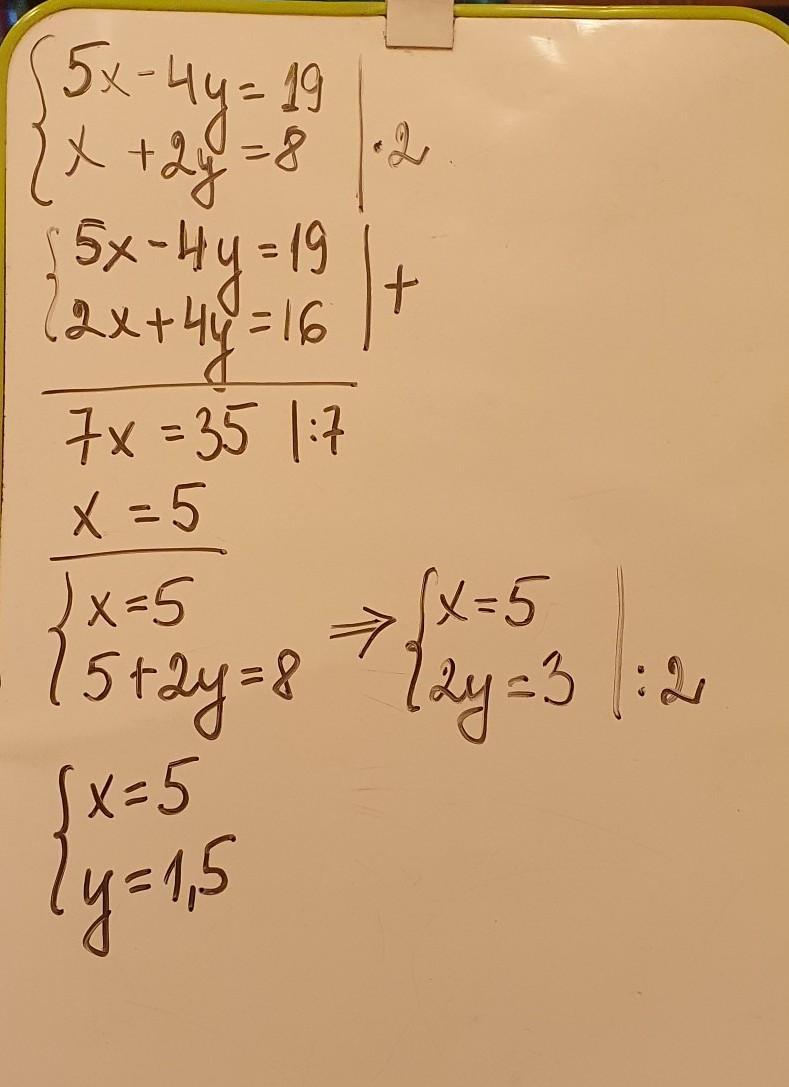 5x-4y=19
x+2y=8 |·2
5x-4y=19
2x+4y=16 | +
7x=35 |:7
x=5
x=5 ⇒ x=5
5+2y=8 2y=3 |:2
x=5
y=1,5